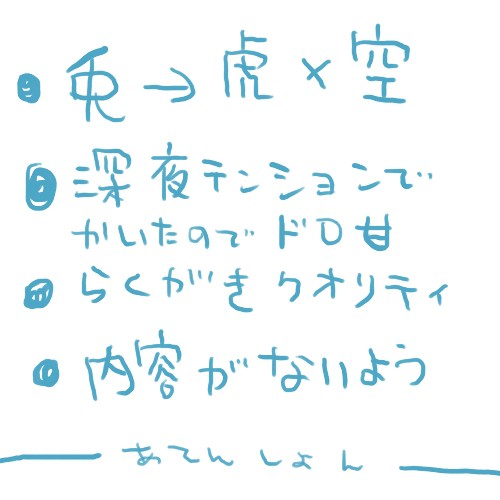 兎→虎×空
深夜テンションで
かいたのでドロ甘
らくがきクオリティ
内容がないよう
あてんしょん